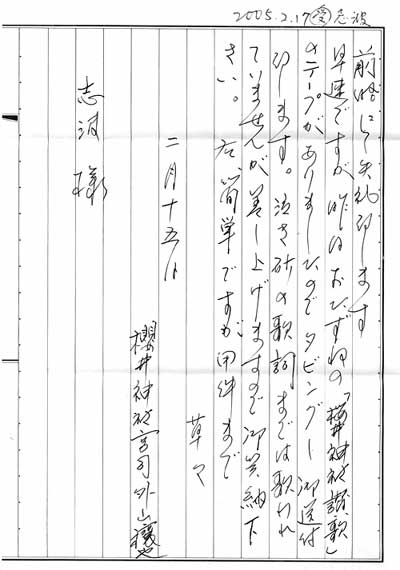 2005.2.17 受 志波
前略にて失礼致します
早速ですが昨日おたずねの「櫻井神社讃歌」
のテープがありましたのでダビングし御送付
致します。泣き砂の歌詞までは歌われ
ていませんが差し上げますので御笑納下
さい。右、簡単ですが用件まで
草々
二月十五日
櫻井神社宮司外山穰也
志波様